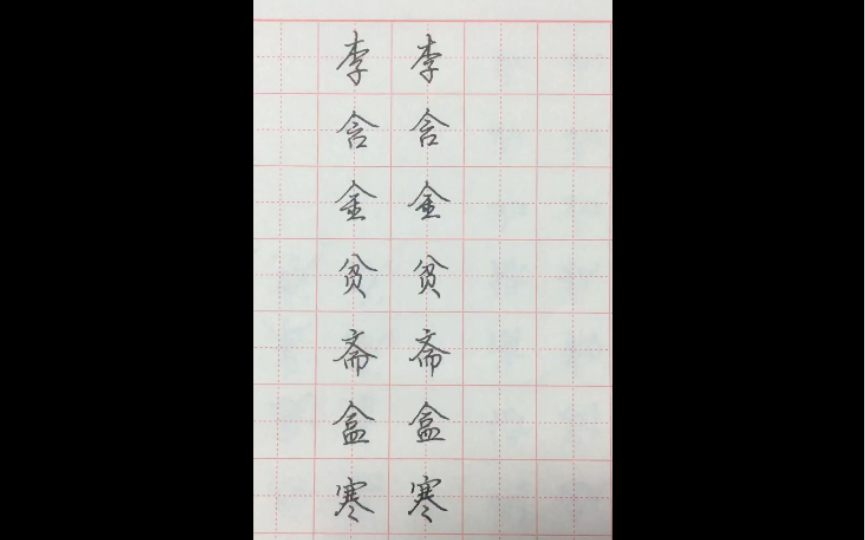 李 李
含 含
金 金
贫 贫
斋 斋
盒 盒
寒 寒